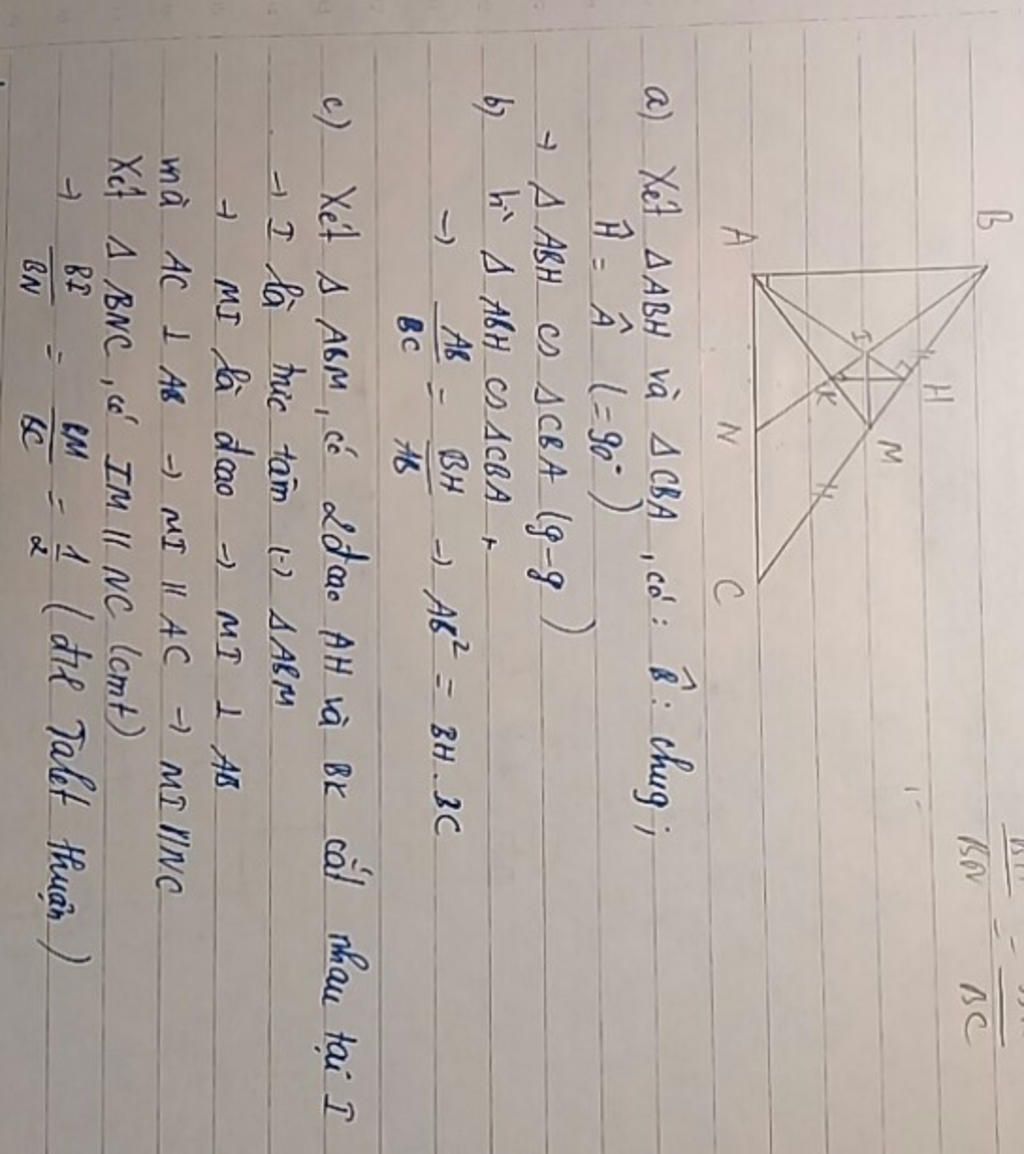 BN BC
B
H
I
K
M
A
N
C
a) Xét Δ ABH và Δ CBA, có: B̂: chug;
Ĥ = Â (=90°)
→ Δ ABH ∽ Δ CBA (g-g)
b) Δ ABH ∽ Δ CBA
→ AB/BC = BH/AB → AB² = BH.BC
c) Xét Δ ABM, có 2 đcao AH và BK cắt nhau tại I
→ I là trực tâm Δ ABM
→ MI là đcao → MI ⊥ AB
mà AC ⊥ AB → MI // AC → MI // NC
Xét Δ BNC, có IM // NC (cmt)
→ BI/BN = BM/BC = 1/2 (đlí Talet thuận)